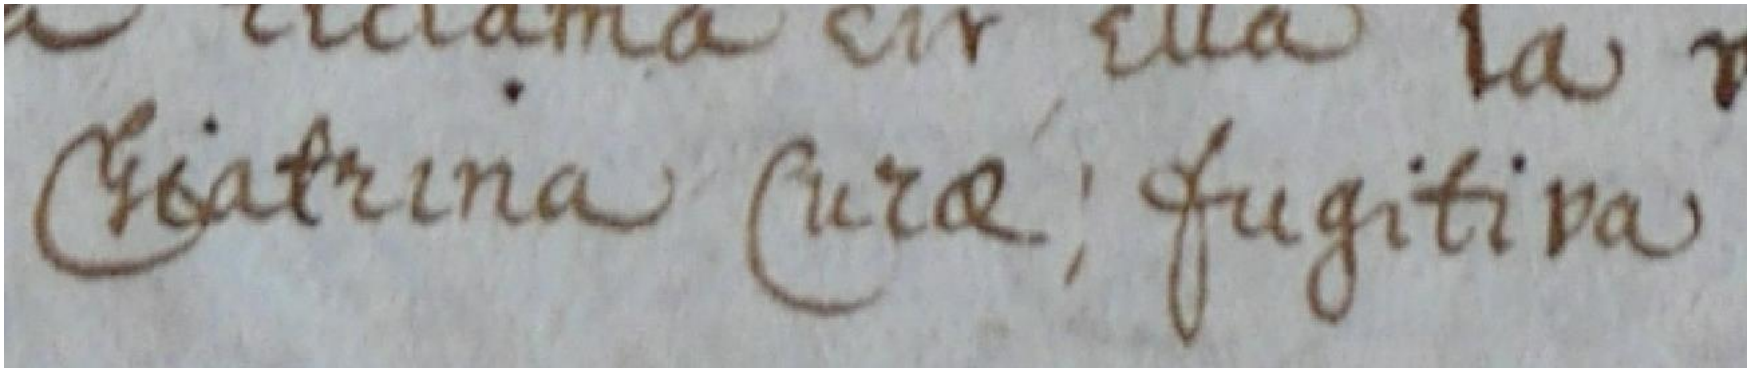 reclama en ella la
Giatrina Curæ, fugitiva